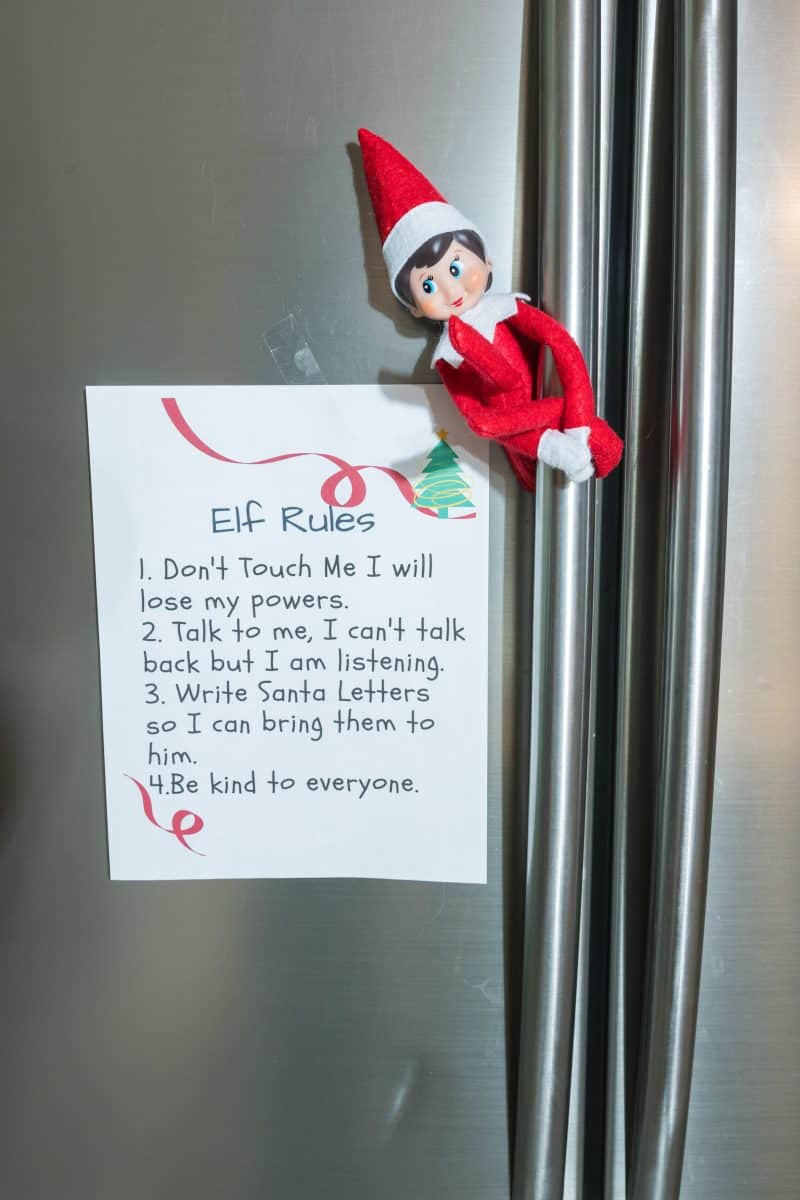 Elf Rules
1. Don't Touch Me I will
lose my powers.
2. Talk to me, I can't talk
back but I am listening.
3. Write Santa Letters
so I can bring them to
him.
4.Be kind to everyone.